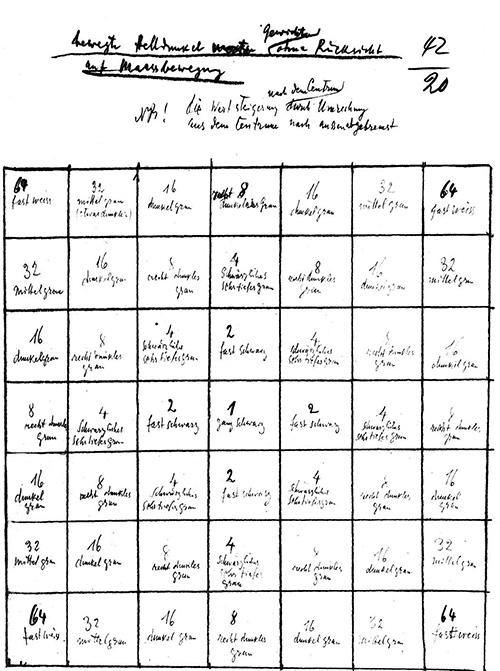 Gewichten
bewegte Helldunkel ohne Rücksicht
auf Maassbewegung
42
20
nach dem Centrum
NB! die Wertsteigerung durch Umrechnung
aus dem Centrum nach aussen
64 32 16 8 16 32 64
fast weiss mittelgrau dunkelgrau dunkelgrau mittelgrau fast weiss
32 16 8 4 8 16 32
mittelgrau dunkelgrau recht dunkles grau schwärzliches sehr tiefes grau recht dunkles grau dunkelgrau mittelgrau
16 8 4 2 4 8 16
dunkelgrau recht dunkles grau schwärzliches sehr tiefes grau fast schwarz schwärzliches sehr tiefes grau recht dunkles grau dunkelgrau
8 4 2 1 2 4 8
recht dunkles grau schwärzliches sehr tiefes grau fast schwarz ganz schwarz fast schwarz schwärzliches sehr tiefes grau recht dunkles grau
16 8 4 2 4 8 16
dunkel grau recht dunkles grau schwärzliches sehr tiefes grau fast schwarz schwärzliches sehr tiefes grau recht dunkles grau dunkel grau
32 16 8 4 8 16 32
mittelgrau dunkelgrau recht dunkles grau schwärzliches sehr tiefes grau recht dunkles grau dunkelgrau mittelgrau
64 32 16 8 16 32 64
fast weiss mittelgrau dunkel grau recht dunkles grau dunkel grau mittelgrau fast weiss